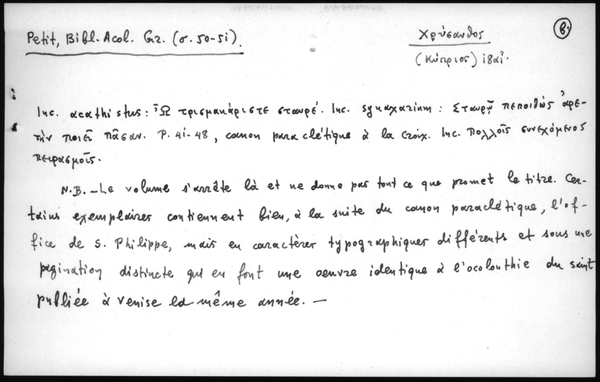 Petit, Bibl. Acol. Gr. (σ. 50-51).
Χρύσανθος
β.
(Κύπριος) ιβαϊ.
Inc. acathistus: Ὦ τρισμακάριστε σταυρέ. Inc. synaxarium: Σταυρῷ πεποιθὼς ἀρε-
τὴν ποιεῖ πᾶσαν. P. 41-48, canon paraclétique à la croix. Inc. Πολλοῖς συνεχόμενος
πειρασμοῖς.
N.B. - Le volume s'arrête là et ne donne pas tout ce que promet le titre. Cer-
tains exemplaires contiennent bien, à la suite du canon paraclétique, l'of-
fice de S. Philippe, mais en caractères typographiques différents et sous une
pagination distincte qui en font une oeuvre identique à l'acolouthie du saint
publiée à Venise la même année. —